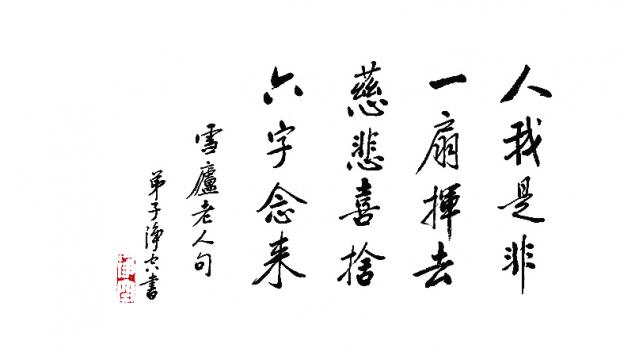 人我是非
一扇揮去
慈悲喜捨
六字念来
雪廬老人句
弟子淨空書